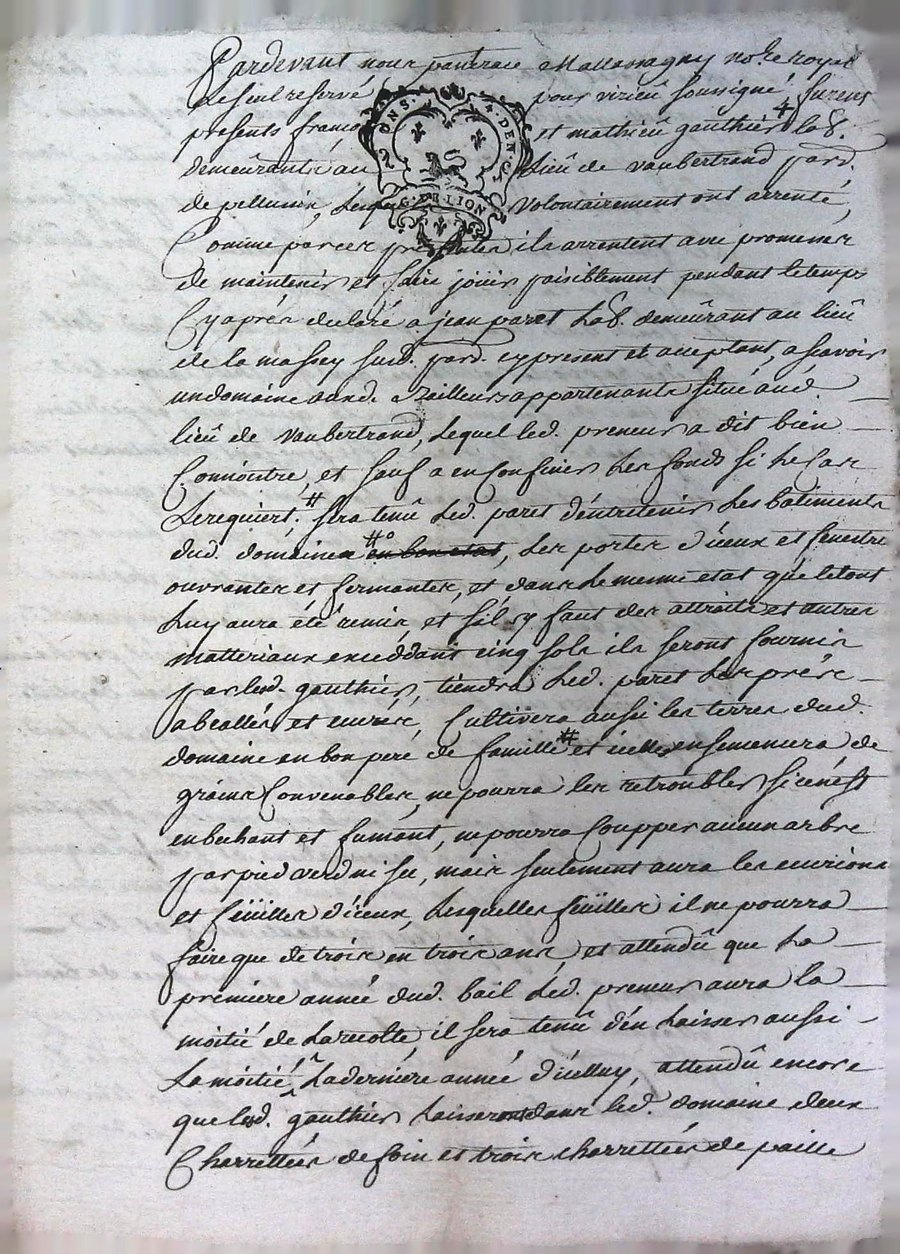 Pardevant nous pancrace a Mallassagny no.re royal
Le seul reservé pour virieu soussigné furent
presents franc et mathieu gauthier lab.
demeurants au Lieu de vaubertrand par.
de pellussin, Lesq volontairement ont arrenté,
Comme par ces presentes ils arrentent avec promesses
de maintenir et faire jouir paisiblement pendant le temps
Cy aprés declaré a jean paret Lab. demeurant au lieu
de la massey susd. par. cy present et acceptant, a scavoir
un domaine auxd. Bailleurs appartenants situé aud.
lieu de vaubertrand, Lequel led. preneur a dit bien
Connoitre, et sauf a en Confiner Les fonds si Le Cas
Le requiert. # sera tenu Led. paret d'entretenir Les batiments
dud. domaine # en bon etat, Les portes d'iceux et fenestres
ouvrantes et fermantes, et dans Le meme etat que le tout
Luy aura été remis et s'il y faut des attraits et autres
matteriaux exceddant cinq sols ils seront fournis
par lesd. gauthier, tiendra Led. paret Les prés
abeallés et curés, Cultivera aussi les terres dud.
domaine en bon pere de famille # et icelles ensemencera de
grains Convenables, ne pourra les retroubler si ce n'est
en bechant et fumant, ne pourra Coupper aucun arbre
par pied verd ni sec, mais seulement aura les
et feüilles d'iceux, Lesquelles feüilles il ne pourra
faire que de trois en trois ans, et attendu que La
premiere année dud. bail Led. preneur aura la
moitié de La recolte il sera tenu d'en Laisser aussi
La moitié La derniere année d'icelluy, attendu encore
que lesd. gauthier Laisseront dans led. domaine deux
Charrettées de foin et trois charrettées de paille
ONS. DEN.
G. DE LION